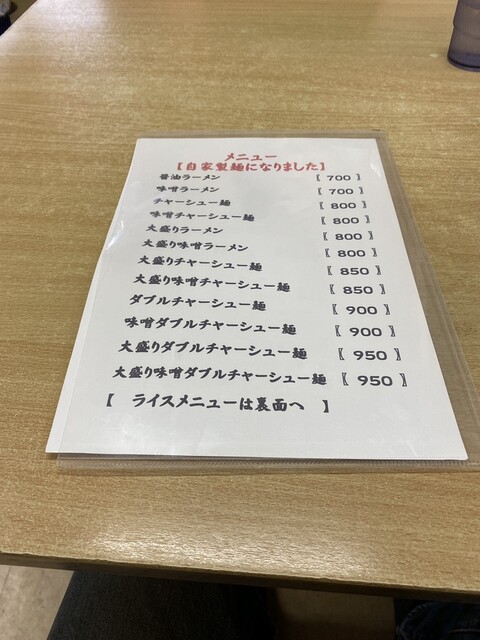 メニュー
【自家製麺になりました】
醤油ラーメン 〖 700 〗
味噌ラーメン 〖 700 〗
チャーシュー麺 〖 800 〗
味噌チャーシュー麺 〖 800 〗
大盛りラーメン 〖 800 〗
大盛り味噌ラーメン 〖 800 〗
大盛りチャーシュー麺 〖 850 〗
大盛り味噌チャーシュー麺 〖 850 〗
ダブルチャーシュー麺 〖 900 〗
味噌ダブルチャーシュー麺 〖 900 〗
大盛りダブルチャーシュー麺 〖 950 〗
大盛り味噌ダブルチャーシュー麺 〖 950 〗
【 ライスメニューは裏面へ 】